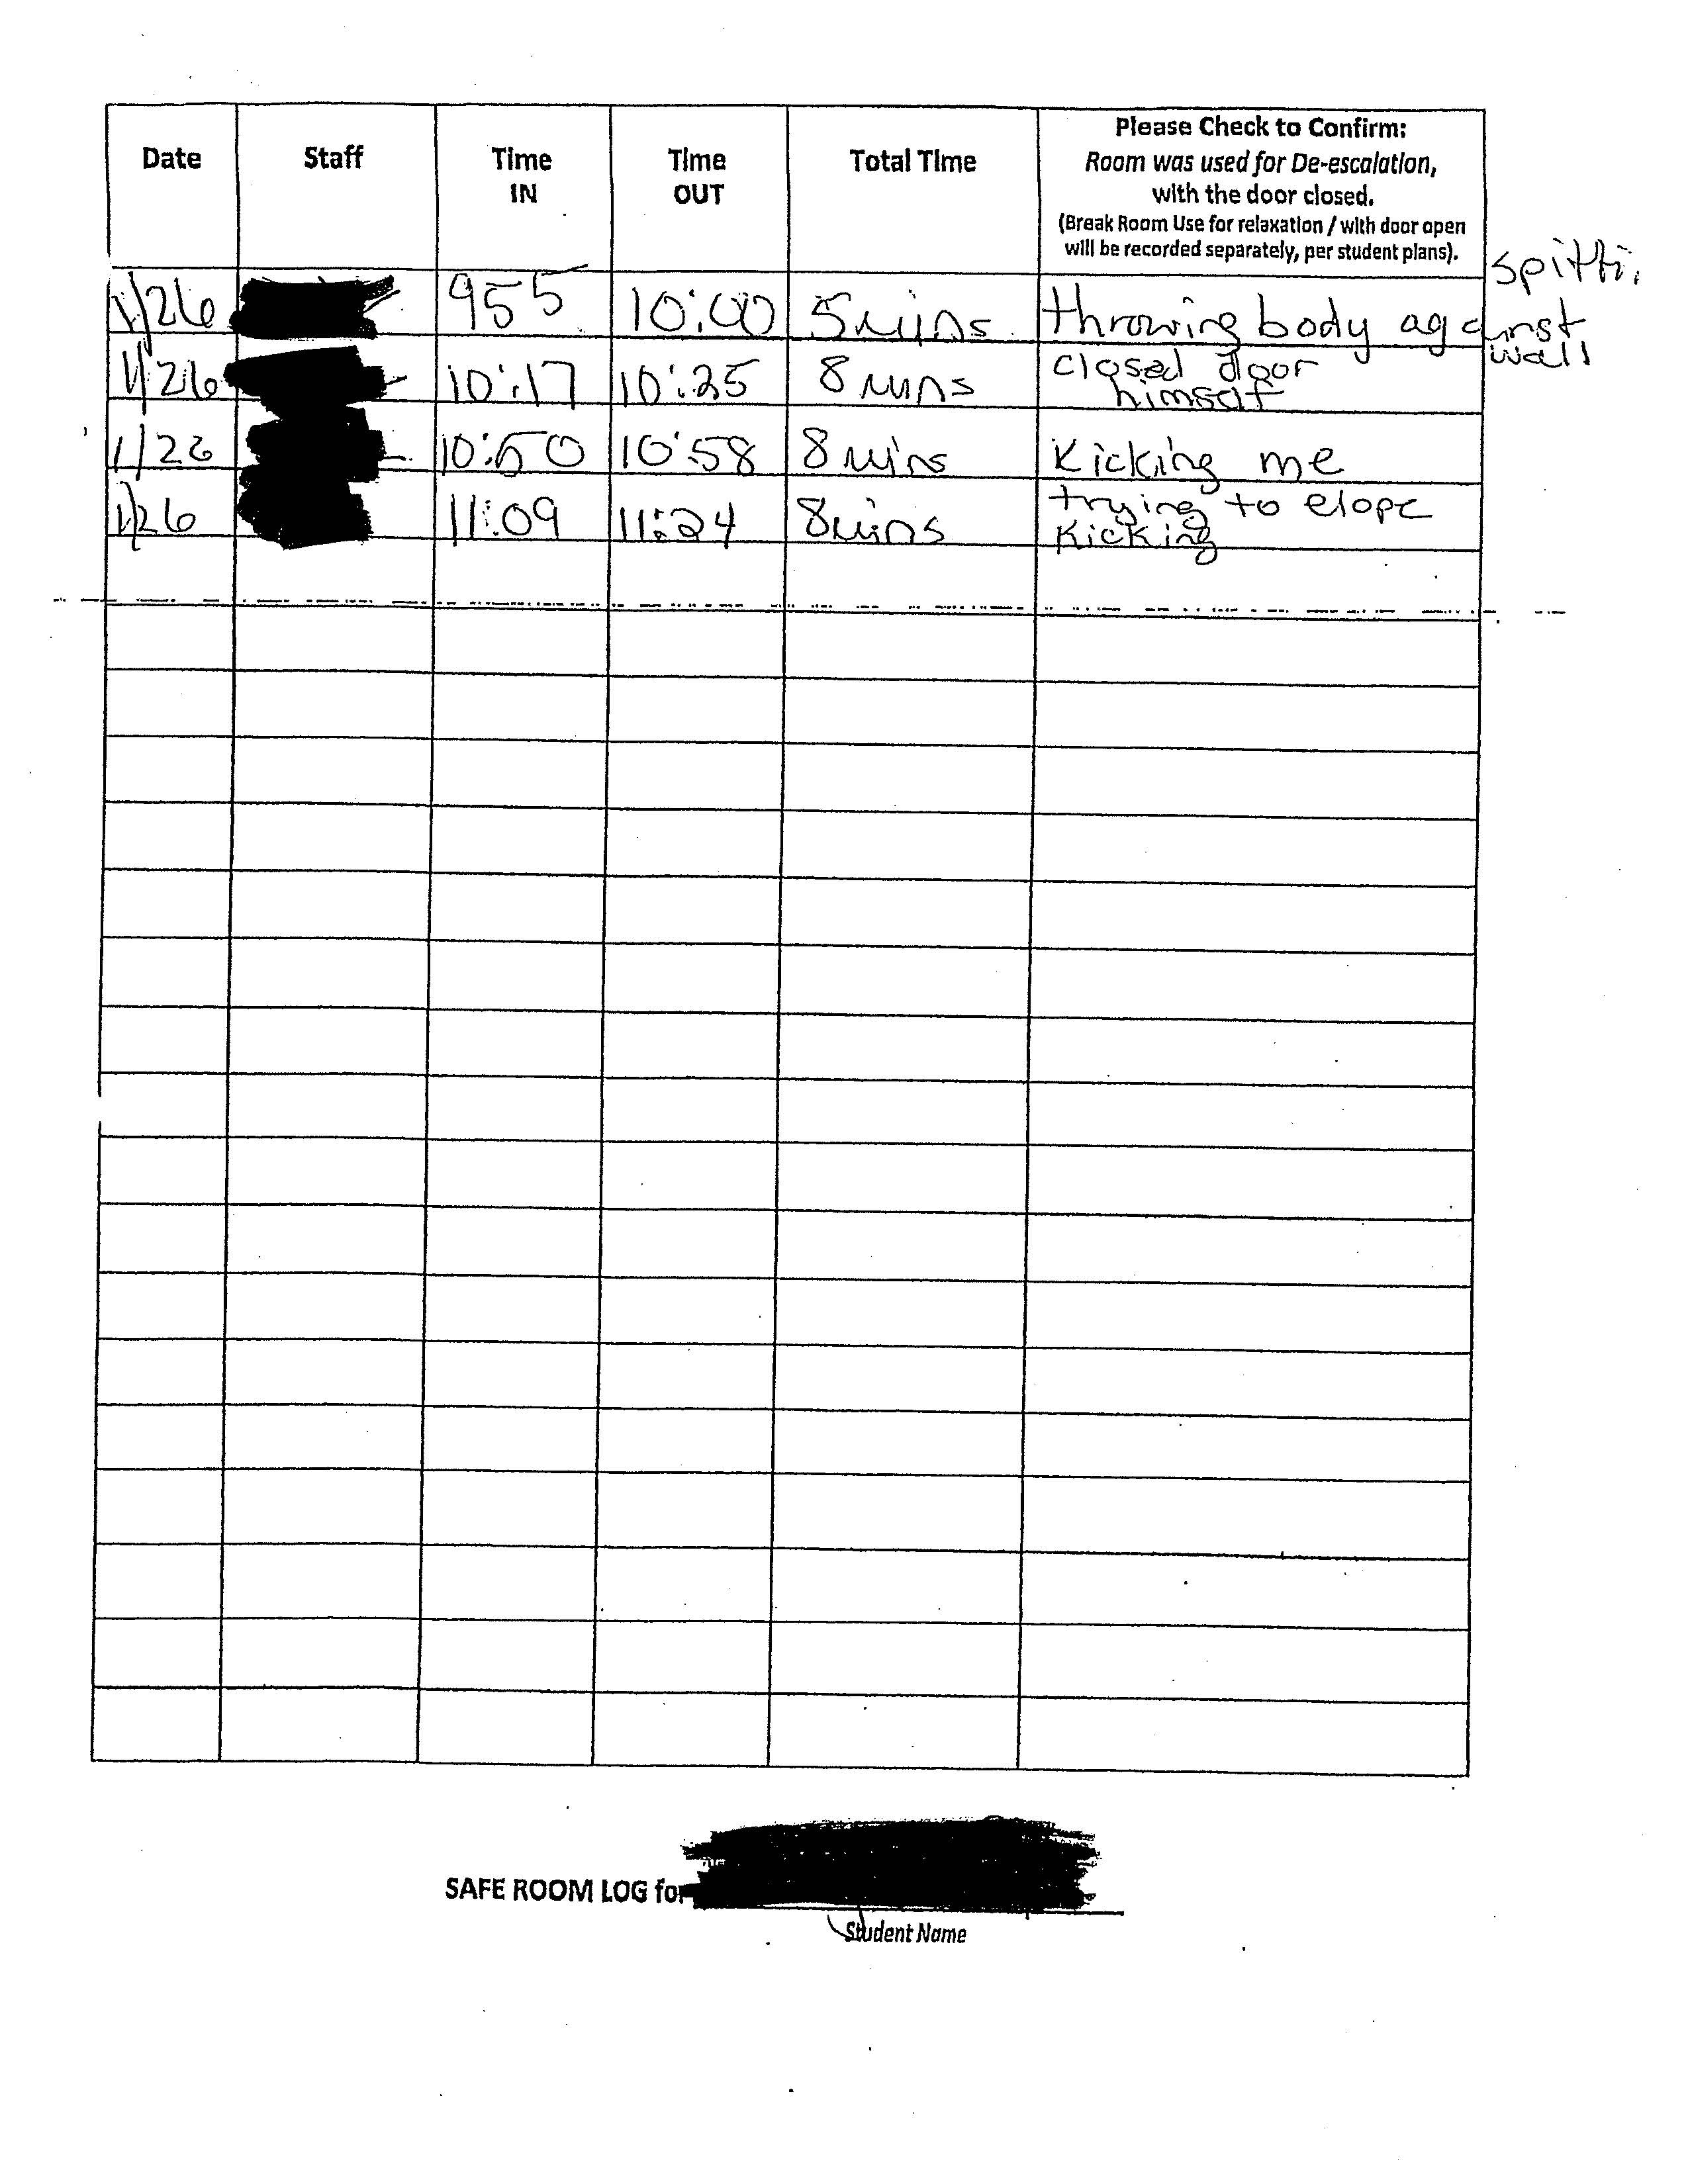 Date Staff Time IN Time OUT Total Time Please Check to Confirm:
Room was used for De-escalation,
with the door closed.
(Break Room Use for relaxation / with door open
will be recorded separately, per student plans).
1/26 955 10:00 5 mins throwing body against wall
1/26 10:17 10:25 8 mins closed door
himself
1/26 10:50 10:58 8 mins Kicking me
1/26 11:09 11:24 8 mins trying to elope
Kicking
SAFE ROOM LOG for
Student Name